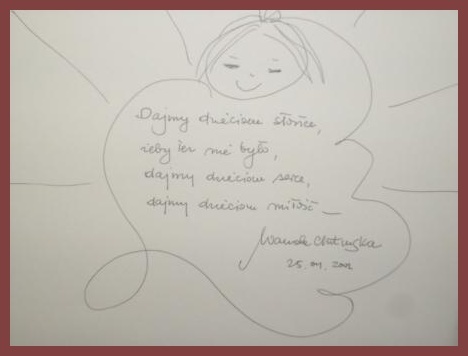 Dajmy dzieciom słońce,
żeby łez nie było,
dajmy dzieciom serce,
dajmy dzieciom miłość –
Wanda Chotomska
2002